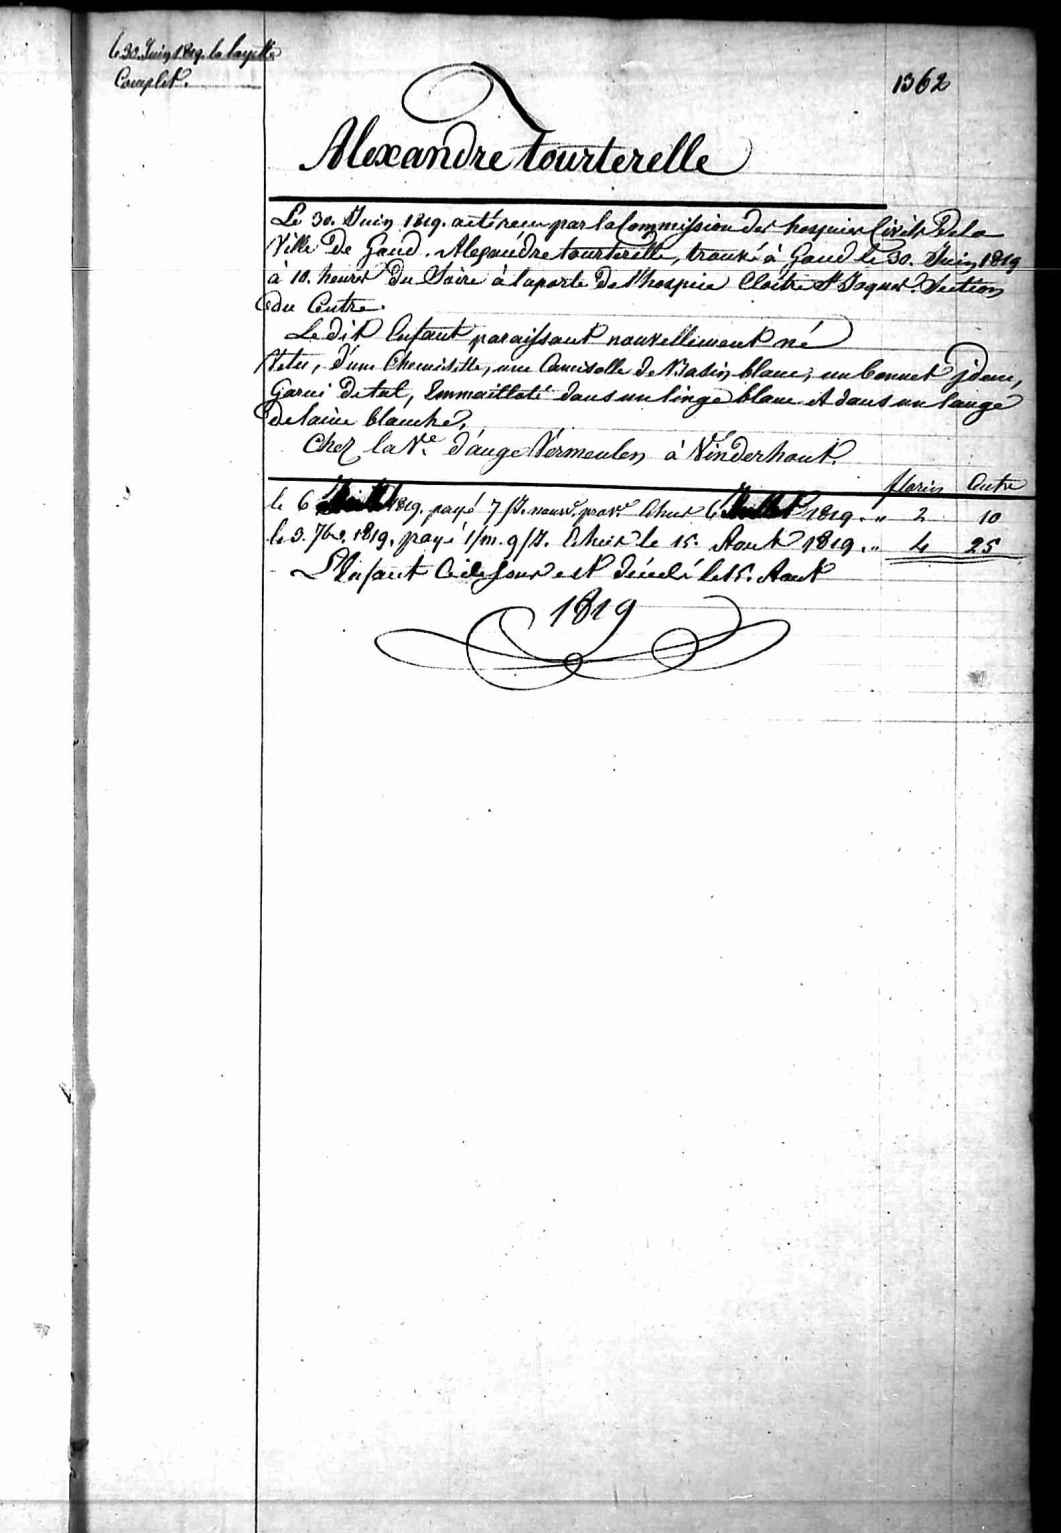 le 30. Juin 1819. la layette
Complet.
1362
Alexandre tourterelle
Le 30. Juin 1819. a été recu par la Commission des hospices Civils De la
Ville De Gand. Alexandre tourterelle, trouvé à Gand le 30. Juin 1819
à 10. heures Du Soire à la porte De l'hospice Cloitre St Joques. Section
du Centre.
Le dit Enfant paraissant nouvellement né
Vetu, d'une Chemisette, une Camisolle de Basin blanc, un bonnet Jdem,
Garni De tul, Emmailloté dans un linge blanc et dans un lange
De laine blanche,
Chez la Ve. d'ange Vermeulen à Vinderhout.
florins Cents
le 6 Juillet 1819. payé 7 Echus 6 Juillet 1819. " 2 10
le 3. 7bre. 1819. payé 1/m. 9 Echus le 15. Aout 1819. " 4 25
L'Enfant est décédé le 15. Aout
1819